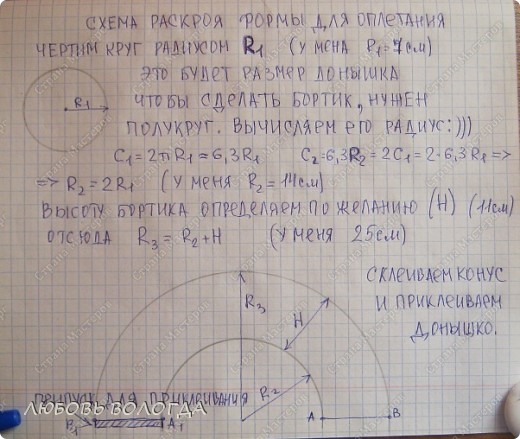 СХЕМА РАСКРОЯ ФОРМЫ ДЛЯ ОПЛЕТАНИЯ
ЧЕРТИМ КРУГ РАДИУСОМ R₁ (У МЕНЯ R₁=7см)
ЭТО БУДЕТ РАЗМЕР ДОНЫШКА
R₁
ЧТОБЫ СДЕЛАТЬ БОРТИК, НУЖЕН
ПОЛУКРУГ. ВЫЧИСЛЯЕМ ЕГО РАДИУС:)))
C₁=2πR₁≈6,3R₁ C₂=6,3R₂=2C₁=2·6,3R₁=>
=> R₂=2R₁ (У МЕНЯ R₂=14см)
ВЫСОТУ БОРТИКА ОПРЕДЕЛЯЕМ ПО ЖЕЛАНИЮ (H) (11см)
ОТСЮДА R₃=R₂+H (У МЕНЯ 25см)
СКЛЕИВАЕМ КОНУС
И ПРИКЛЕИВАЕМ
ДОНЫШКО.
R₃
H
R₂
ПРИПУСК ДЛЯ ПРИКЛЕИВАНИЯ
A B
B₁ A₁
ЛЮБОВЬ ВОЛОГДА
Страна Мастеров